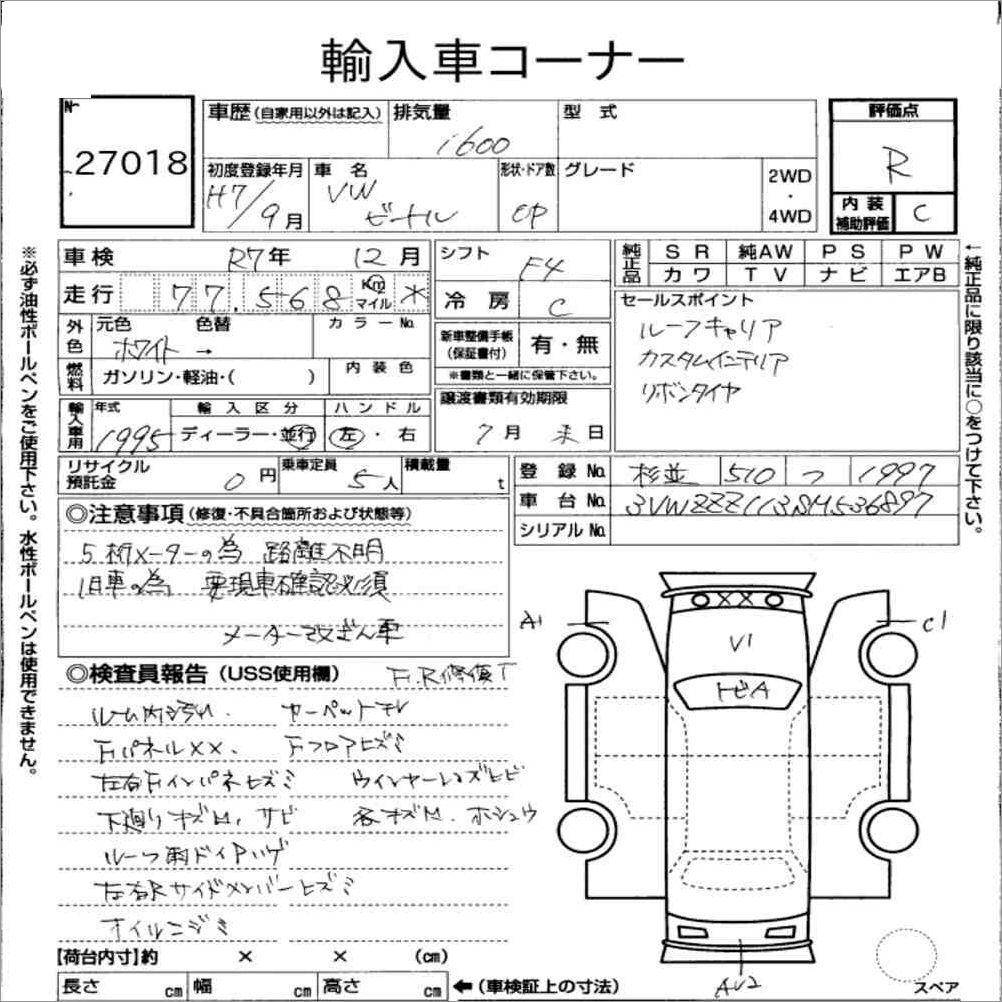 輸入車コーナー
No. 27018
車歴(自家用以外は記入) 排気量 1600 型式
評価点 R
初度登録年月 H7/9月 車名 VW ビートル 形状・ドア数 CP グレード 2WD・4WD
内装補助評価 C
車検 R7年 12月 シフト F4
純正品 SR 純AW PS PW
カワ TV ナビ エアB
走行 77,568 Km マイル * 冷房 C
セールスポイント
ルーフキャリア
カスタムインテリア
リボンタイヤ
外色 元色 ホワイト → 色替 カラーNo.
新車整備手帳(保証書付) 有・無
※書類と一緒に保管下さい。
燃料 ガソリン・軽油・( ) 内装色
譲渡書類有効期限
7月 末日
輸入車用 年式 1995 輸入区分 ディーラー・並行 ハンドル 左・右
リサイクル預託金 0円 乗車定員 5人 積載量 t
登録No. 杉並 510 つ 1997
車台No. 3VWZZZ113SM536897
シリアルNo.
◎注意事項(修復・不具合箇所および状態等)
5桁メーターの為 距離不明
旧車の為 要現車確認必須
メーター改ざん車
◎検査員報告(USS使用欄) F.R修復了
ルーム内汚れ. カーペットテレ
FパネルXX. Fフロアヒズミ
左右Fインパネヒズミ ウインカーレンズヒビ
下廻りキズM. サビ 各キズM. ホシュウ
ルーフ雨ドイPハゲ
左右Rサイドメンバーヒズミ
オイルニジミ
【荷台内寸】約 × × (cm)
長さ cm 幅 cm 高さ cm ←(車検証上の寸法)
A1
XX
C1
V1
トビA
AV2
スペア
※必ず油性ボールペンをご使用下さい。水性ボールペンは使用できません。
←純正品に限り該当に○をつけて下さい。